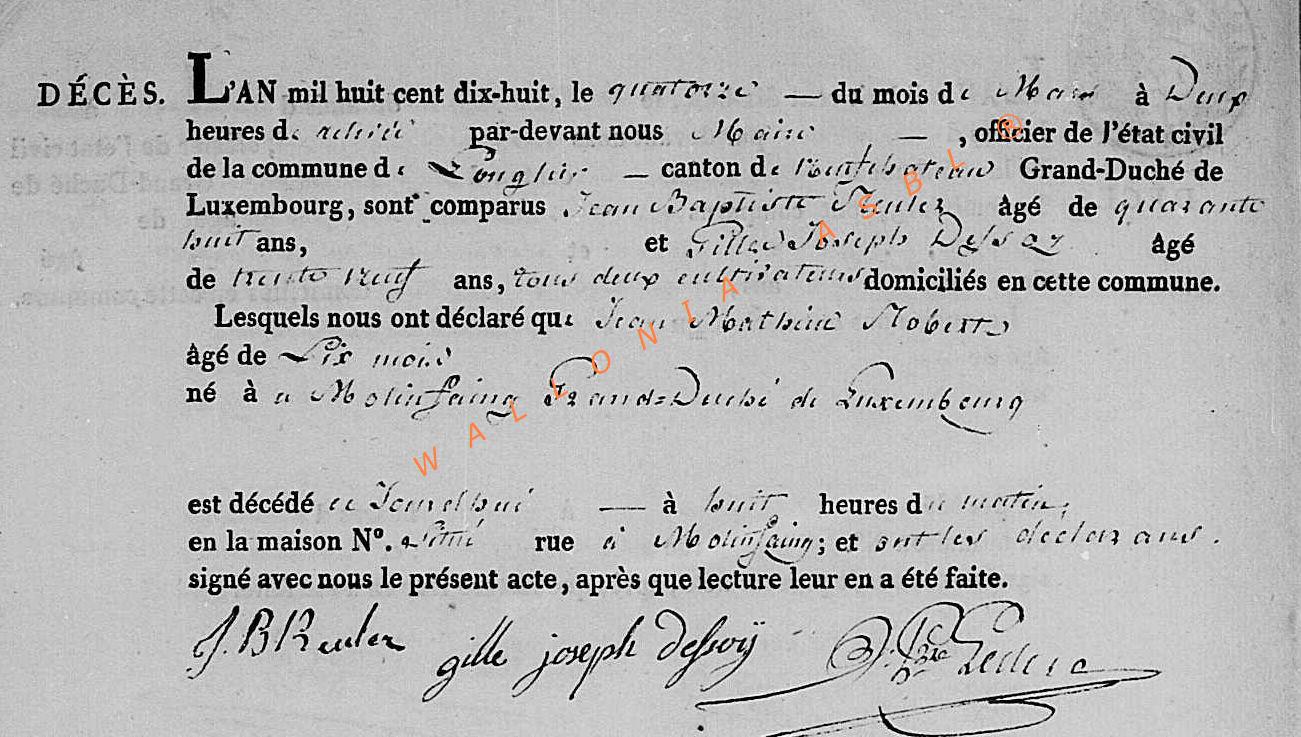 DÉCÈS. L'AN mil huit cent dix-huit, le quatorze — du mois de Mars à Deux
heures de relevée par-devant nous Maire — , officier de l'état civil
de la commune de Longlier — canton de Neufchateau Grand-Duché de
Luxembourg, sont comparus Jean Baptiste Reuler âgé de quarante
huit ans, et Gille Joseph Dessoy âgé
de trente neuf ans, tous deux cultivateurs domiciliés en cette commune.
Lesquels nous ont déclaré que Jean Mathieu Robert
âgé de Six mois
né à a Molinfaing Grand=Duché de Luxembourg
est décédé cejourdhui — à huit heures du matin,
en la maison Nº. Située rue à Molinfaing; et ont les déclarans.
signé avec nous le présent acte, après que lecture leur en a été faite.
J. B Reuler gille joseph dessoÿ J. Bte Leclerc
WALLONIA ASBL ®